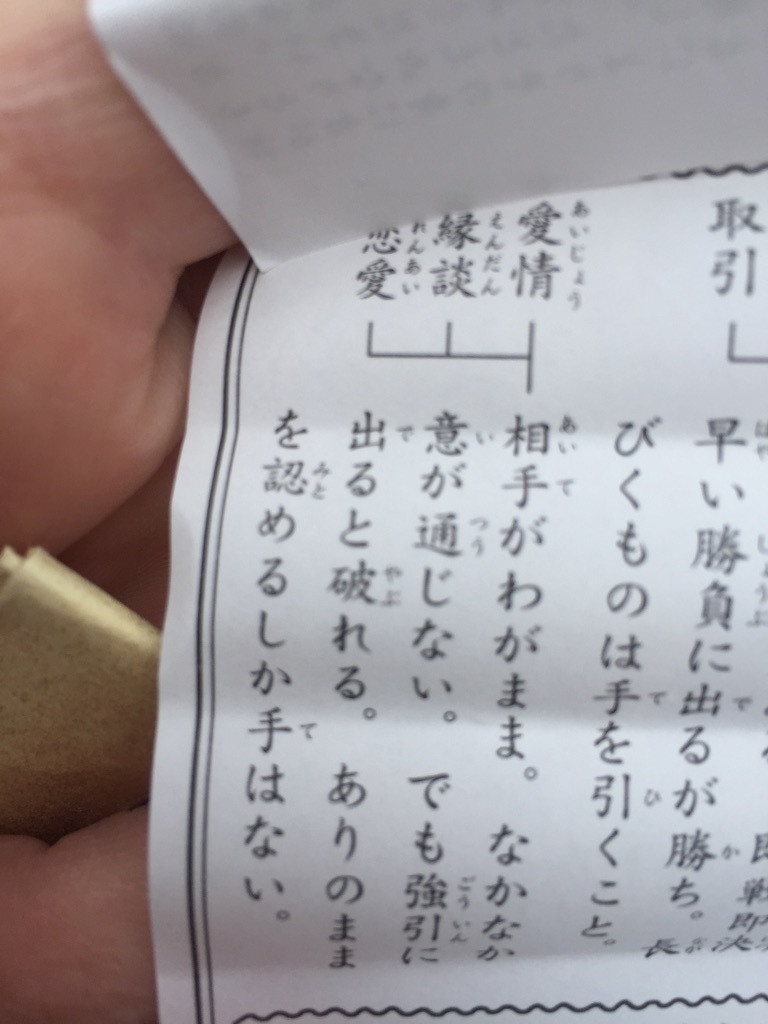 取引
早い勝負に出るが勝ち。長
びくものは手を引くこと。
愛情
縁談
恋愛
相手がわがまま。なかなか
意が通じない。でも強引に
出ると破れる。ありのまま
を認めるしか手はない。